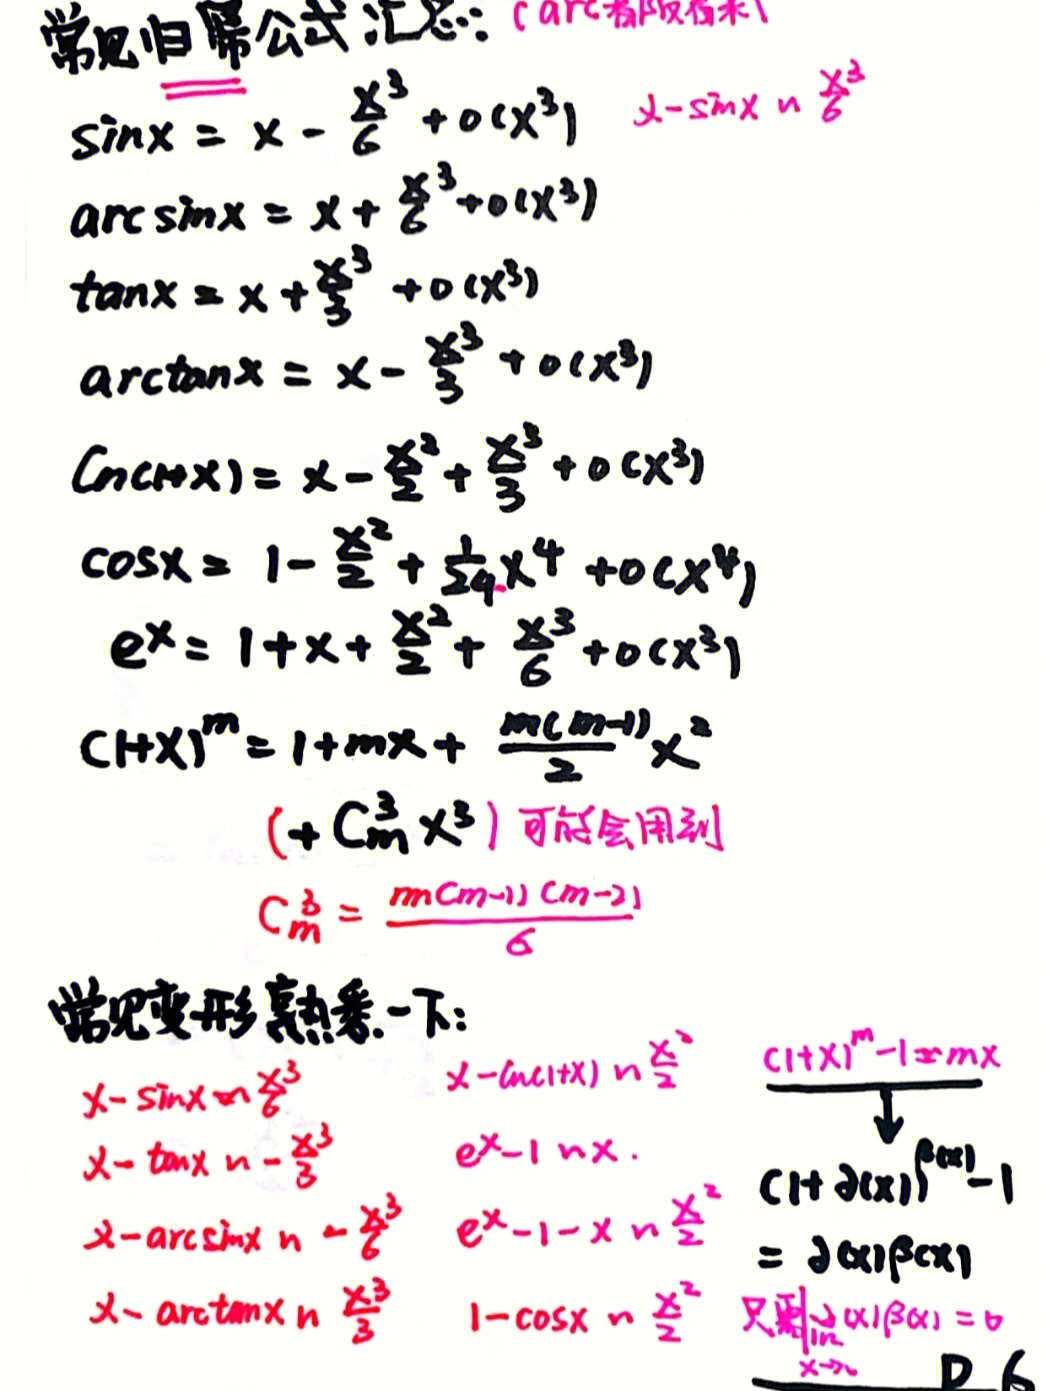 常见归幂公式汇总:
sinx = x - x³/6 + o(x³) x-sinx ~ x³/6
arcsinx = x + x³/6 + o(x³)
tanx = x + x³/3 + o(x³)
arctanx = x - x³/3 + o(x³)
ln(1+x) = x - x²/2 + x³/3 + o(x³)
cosx = 1 - x²/2 + 1/24 x⁴ + o(x⁴)
eˣ = 1 + x + x²/2 + x³/6 + o(x³)
(1+x)ᵐ = 1 + mx + m(m-1)/2 x²
(+ Cₘ³ x³) 可能会用到
Cₘ³ = m(m-1)(m-2)/6
常见变形熟悉一下:
x-sinx ~ x³/6
x-tanx ~ -x³/3
x-arcsinx ~ -x³/6
x-arctanx ~ x³/3
x-ln(1+x) ~ x²/2
eˣ-1 ~ x.
eˣ-1-x ~ x²/2
1-cosx ~ x²/2
(1+x)ᵐ-1 ~ mx
↓
(1+∂(x))^β(x) -1
= ∂(x)β(x)
∂(x)β(x) = 0
P 6